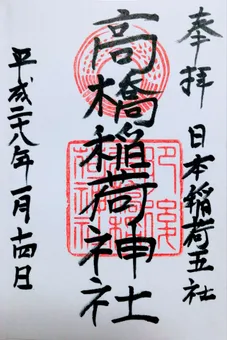 奉拝
日本稲荷五社
高橋稲荷神社
平成二十八年一月十四日